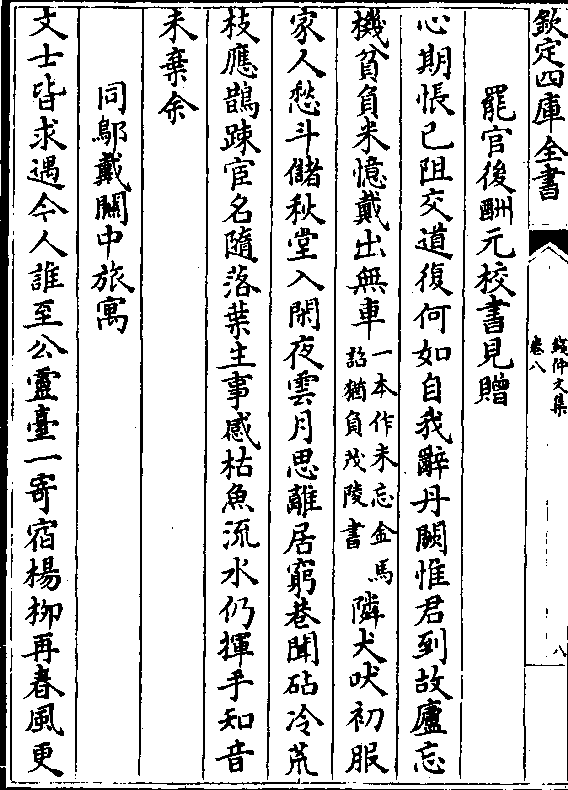 欽定四庫全書
錢仲文集
卷八
八
罷官後酬元校書見贈
心期悵已阻交道復何如自我辭丹闕惟君到故廬忘
機貧負米憶戴出無車一本作未忘金馬
詔猶負茂陵書隣犬吠初服
家人愁斗儲秋堂入閑夜雲月思離居窮巷聞砧冷荒
枝應鵲踈宦名隨落葉生事感枯魚流水仍揮手知音
未棄余
同鄔戴關中旅寓
文士皆求遇今人誰至公靈臺一寄宿楊栁再春風更